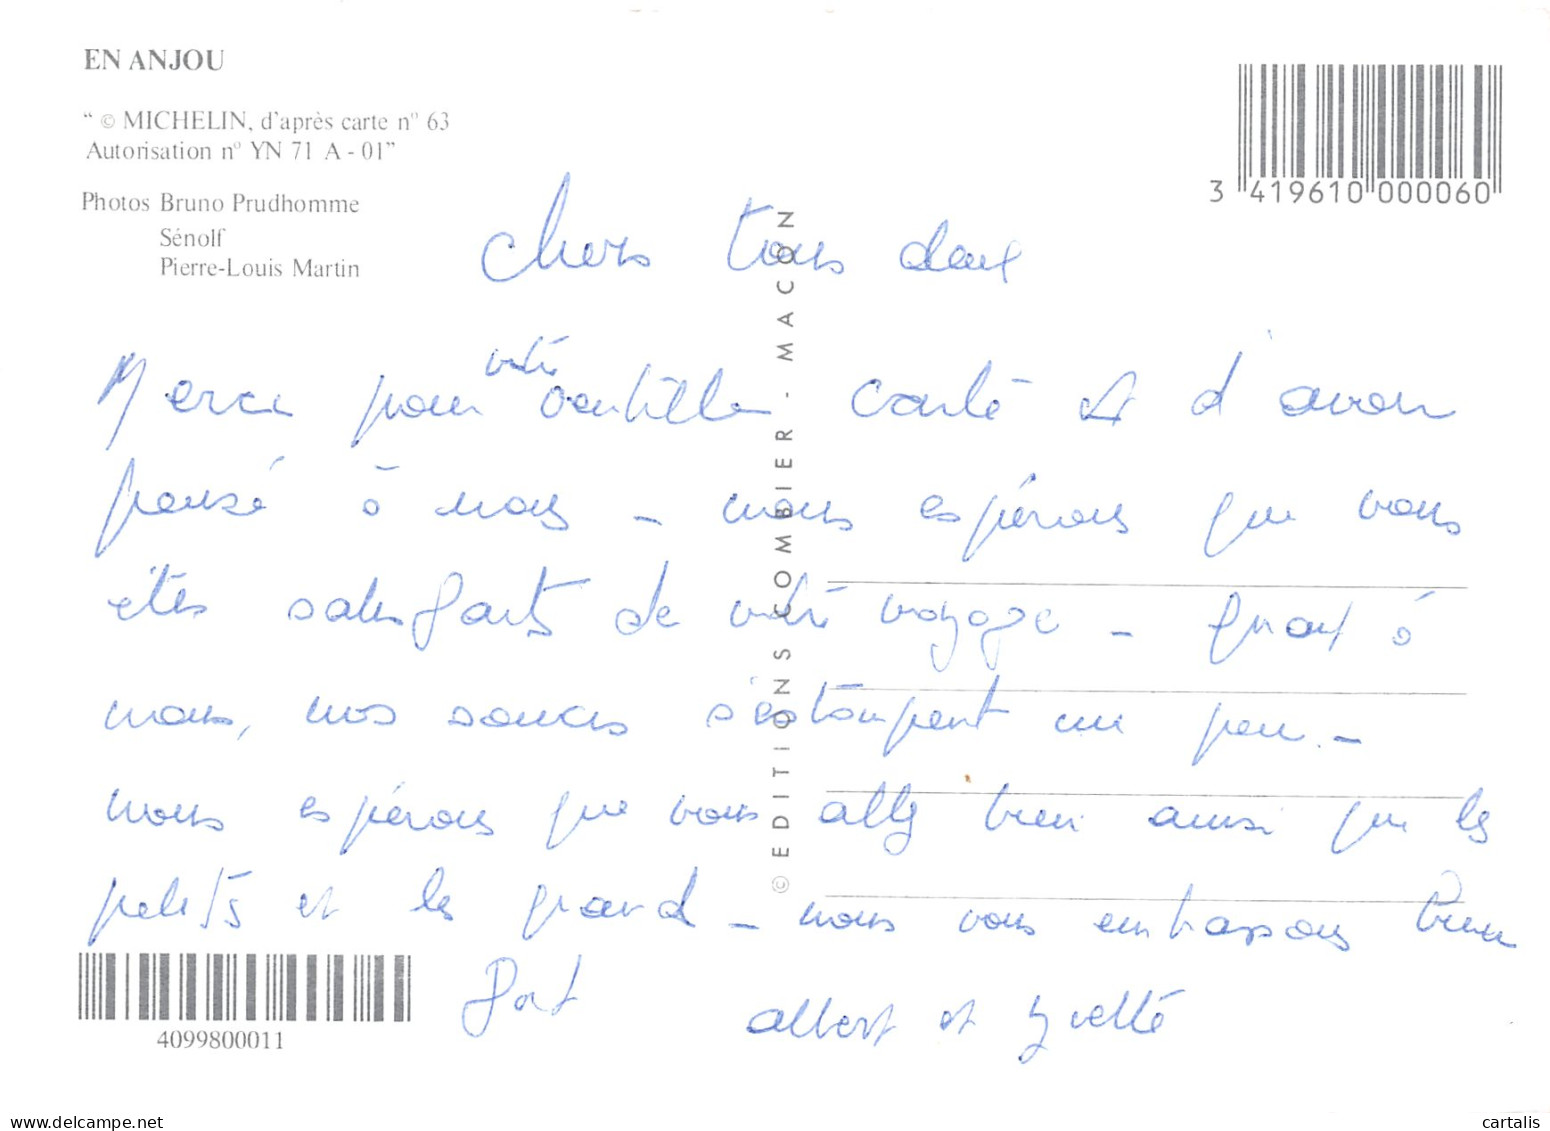 EN ANJOU
“ © MICHELIN, d'après carte n° 63
Autorisation n° YN 71 A - 01”
Photos Bruno Prudhomme
Sénolf
Pierre-Louis Martin
3 419610 000060
© EDITIONS COMBIER - MACON
Chers tous deux
Merci pour votre gentille carte et d'avoir
pensé à nous - nous espérons que vous
êtes satisfaits de votre voyage - Quant à
nous, nos soucis s'estompent un peu. -
nous espérons que vous allez bien ainsi que les
petits et les grand - nous vous embrassons bien
fort
albert et yvette
4099800011
delcampe.net
cartalis